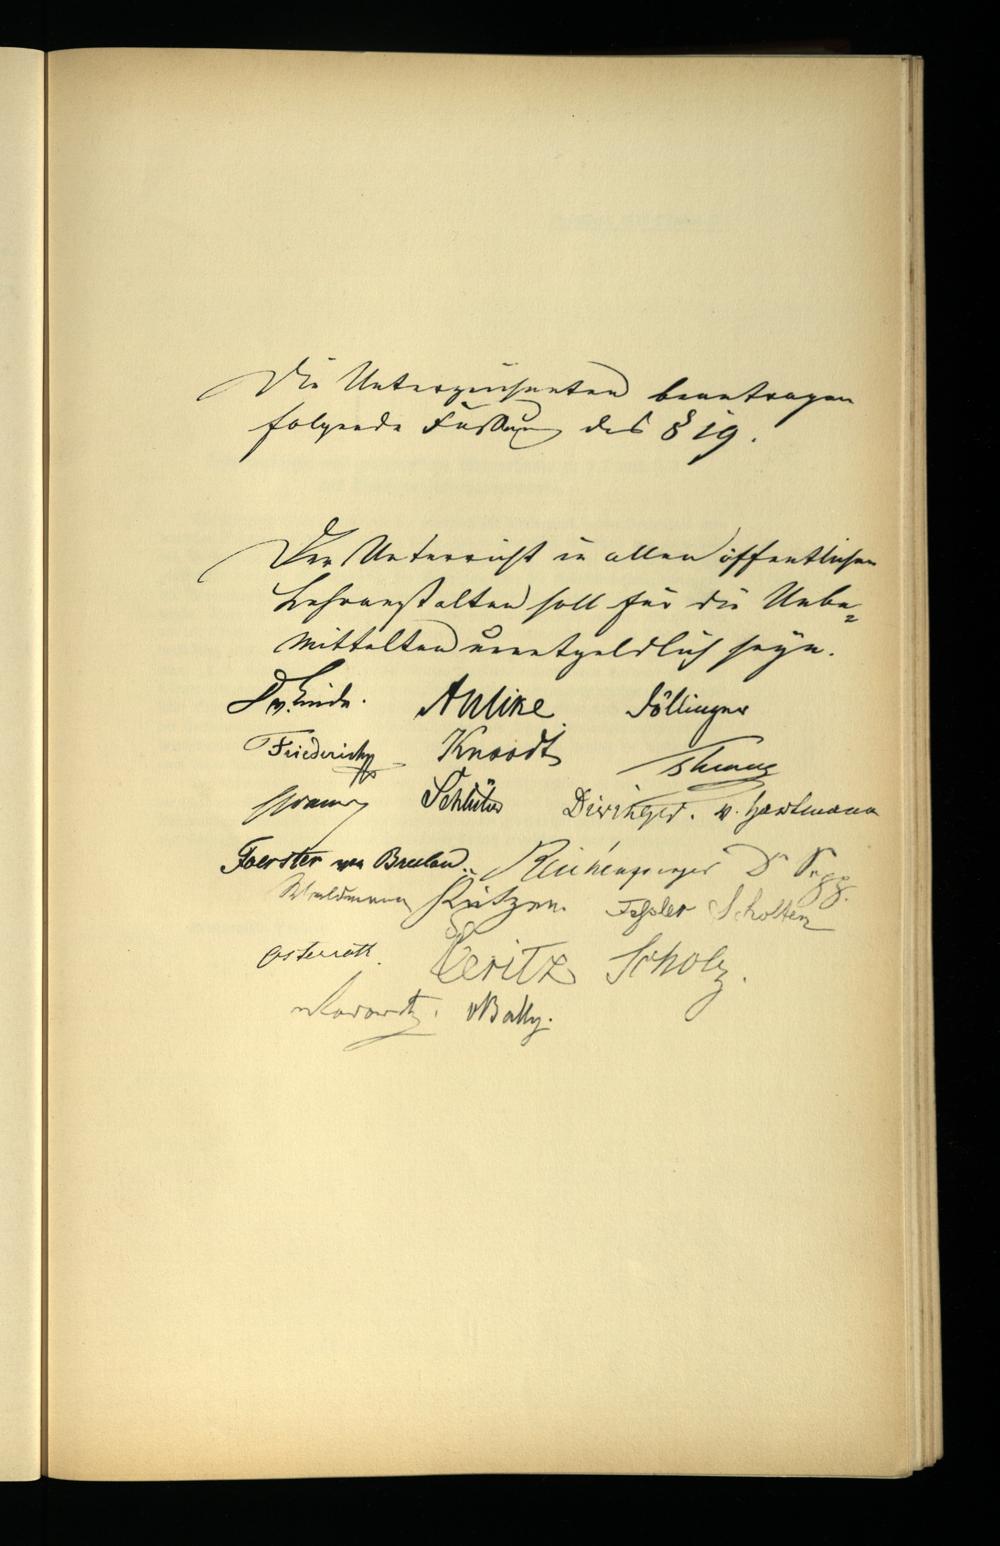 Die Unterzeichneten beantragen
folgende Fassung des § 19.
Der Unterricht in allen öffentlichen
Lehranstalten soll für die Unbe=
mittelten unentgeldlich seyn.
Dr v. Linde. Aulike. Döllinger
Friederich Knoodt
Schlüter Deiringer. v. Hartmann
Foerster von Breslau. Reichensperger Dr Sepp.
Kutzen. Scholten
Osterrath. Geritz Scholz.
v Bally.